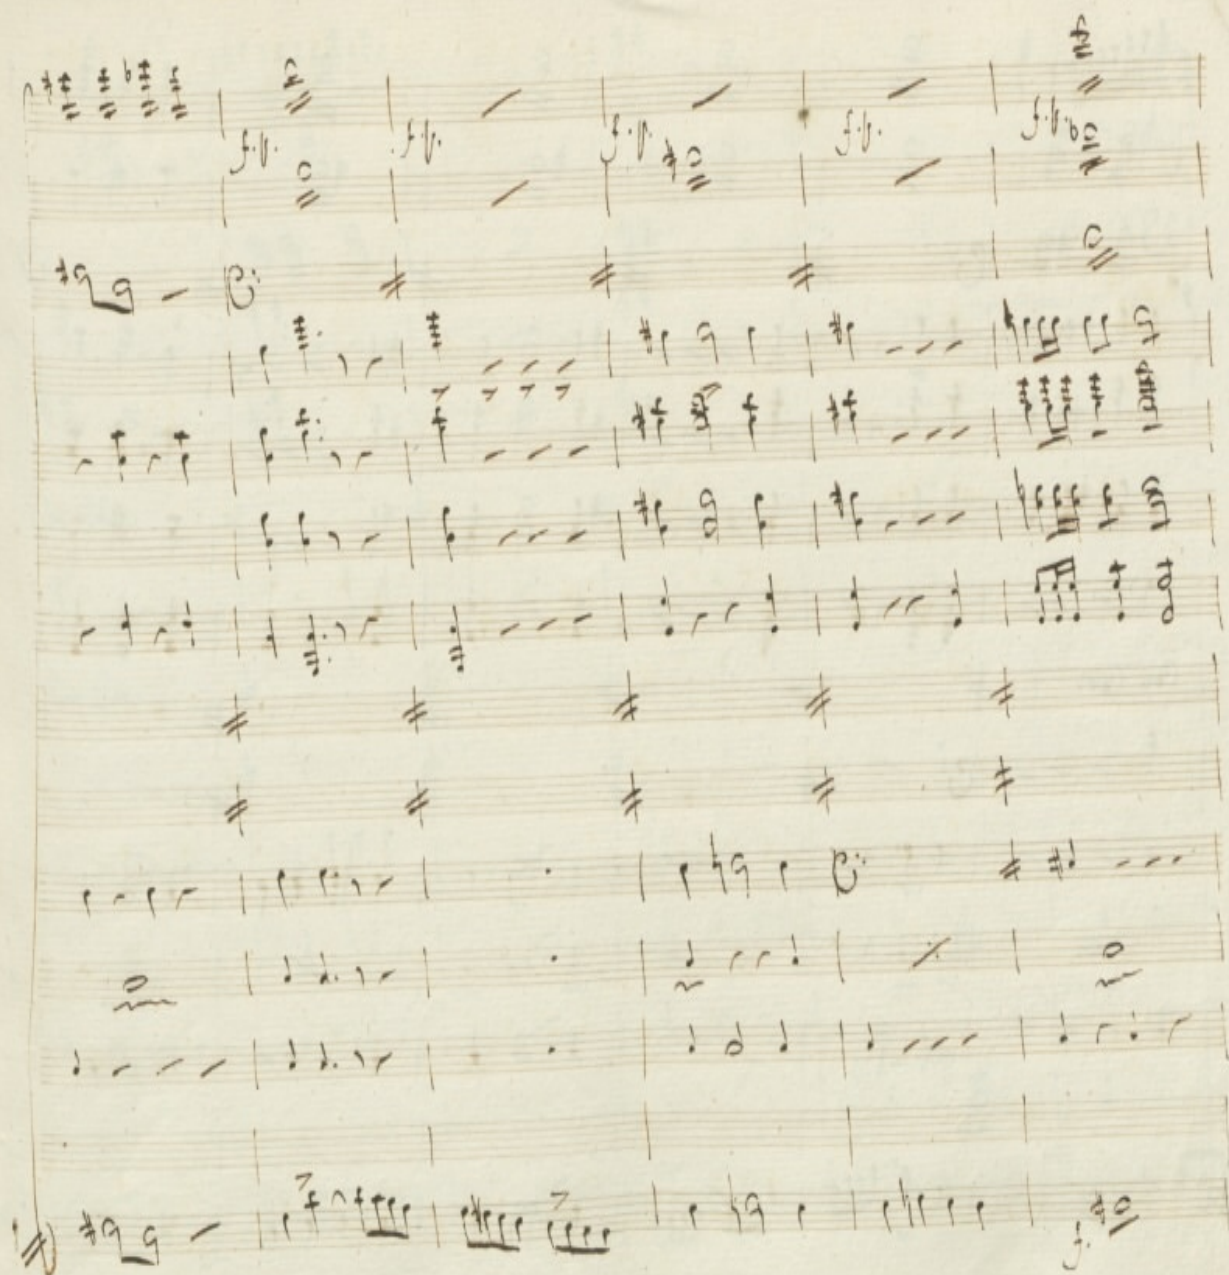 f.p. f.p. f.p. f.p. f.p.
f.